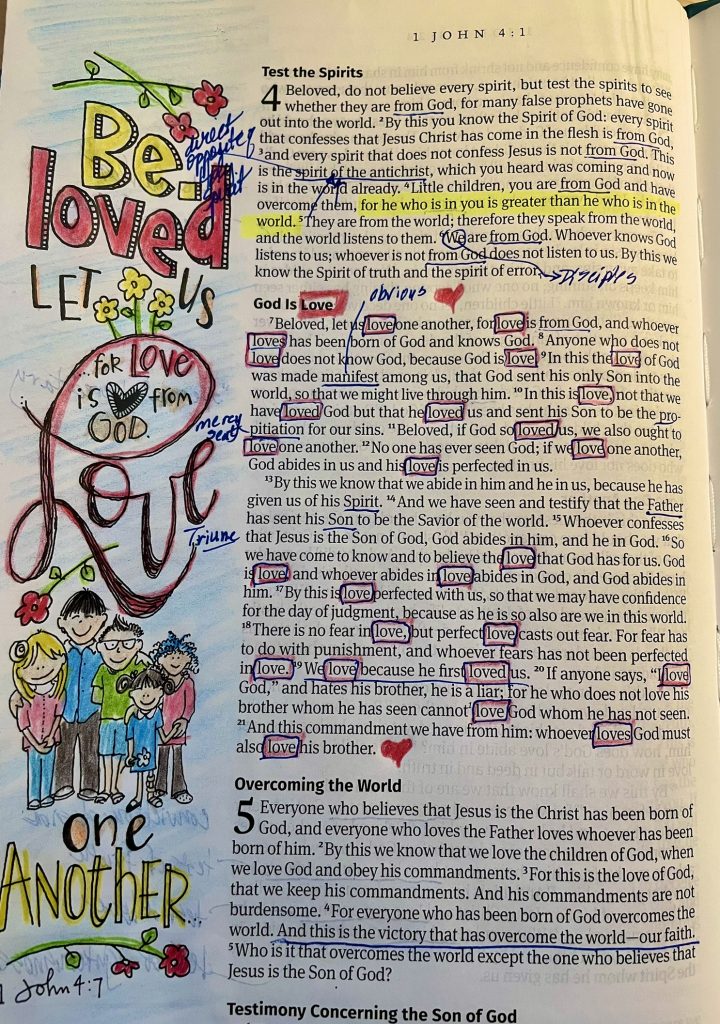 1 JOHN 4:1
Be-
loved
LET US
...for LOVE
is from
GOD.
Love
one
ANOTHER
1 John 4:7
direct
opposite
spirit
obvious
Disciples
mercy
seat
Triune
Test the Spirits
4 Beloved, do not believe every spirit, but test the spirits to see
whether they are from God, for many false prophets have gone
out into the world. 2By this you know the Spirit of God: every spirit
that confesses that Jesus Christ has come in the flesh is from God,
3and every spirit that does not confess Jesus is not from God. This
is the spirit of the antichrist, which you heard was coming and now
is in the world already. 4Little children, you are from God and have
overcome them, for he who is in you is greater than he who is in the
world. 5They are from the world; therefore they speak from the world,
and the world listens to them. 6We are from God. Whoever knows God
listens to us; whoever is not from God does not listen to us. By this we
know the Spirit of truth and the spirit of error.
God Is Love
7Beloved, let us love one another, for love is from God, and whoever
loves has been born of God and knows God. 8Anyone who does not
love does not know God, because God is love. 9In this the love of God
was made manifest among us, that God sent his only Son into the
world, so that we might live through him. 10In this is love, not that we
have loved God but that he loved us and sent his Son to be the pro-
pitiation for our sins. 11Beloved, if God so loved us, we also ought to
love one another. 12No one has ever seen God; if we love one another,
God abides in us and his love is perfected in us.
13By this we know that we abide in him and he in us, because he has
given us of his Spirit. 14And we have seen and testify that the Father
has sent his Son to be the Savior of the world. 15Whoever confesses
that Jesus is the Son of God, God abides in him, and he in God. 16So
we have come to know and to believe the love that God has for us. God
is love, and whoever abides in love abides in God, and God abides in
him. 17By this is love perfected with us, so that we may have confidence
for the day of judgment, because as he is so also are we in this world.
18There is no fear in love, but perfect love casts out fear. For fear has
to do with punishment, and whoever fears has not been perfected
in love. 19We love because he first loved us. 20If anyone says, “I love
God,” and hates his brother, he is a liar; for he who does not love his
brother whom he has seen cannot love God whom he has not seen.
21And this commandment we have from him: whoever loves God must
also love his brother.
Overcoming the World
5 Everyone who believes that Jesus is the Christ has been born of
God, and everyone who loves the Father loves whoever has been
born of him. 2By this we know that we love the children of God, when
we love God and obey his commandments. 3For this is the love of God,
that we keep his commandments. And his commandments are not
burdensome. 4For everyone who has been born of God overcomes the
world. And this is the victory that has overcome the world—our faith.
5Who is it that overcomes the world except the one who believes that
Jesus is the Son of God?
Testimony Concerning the Son of God